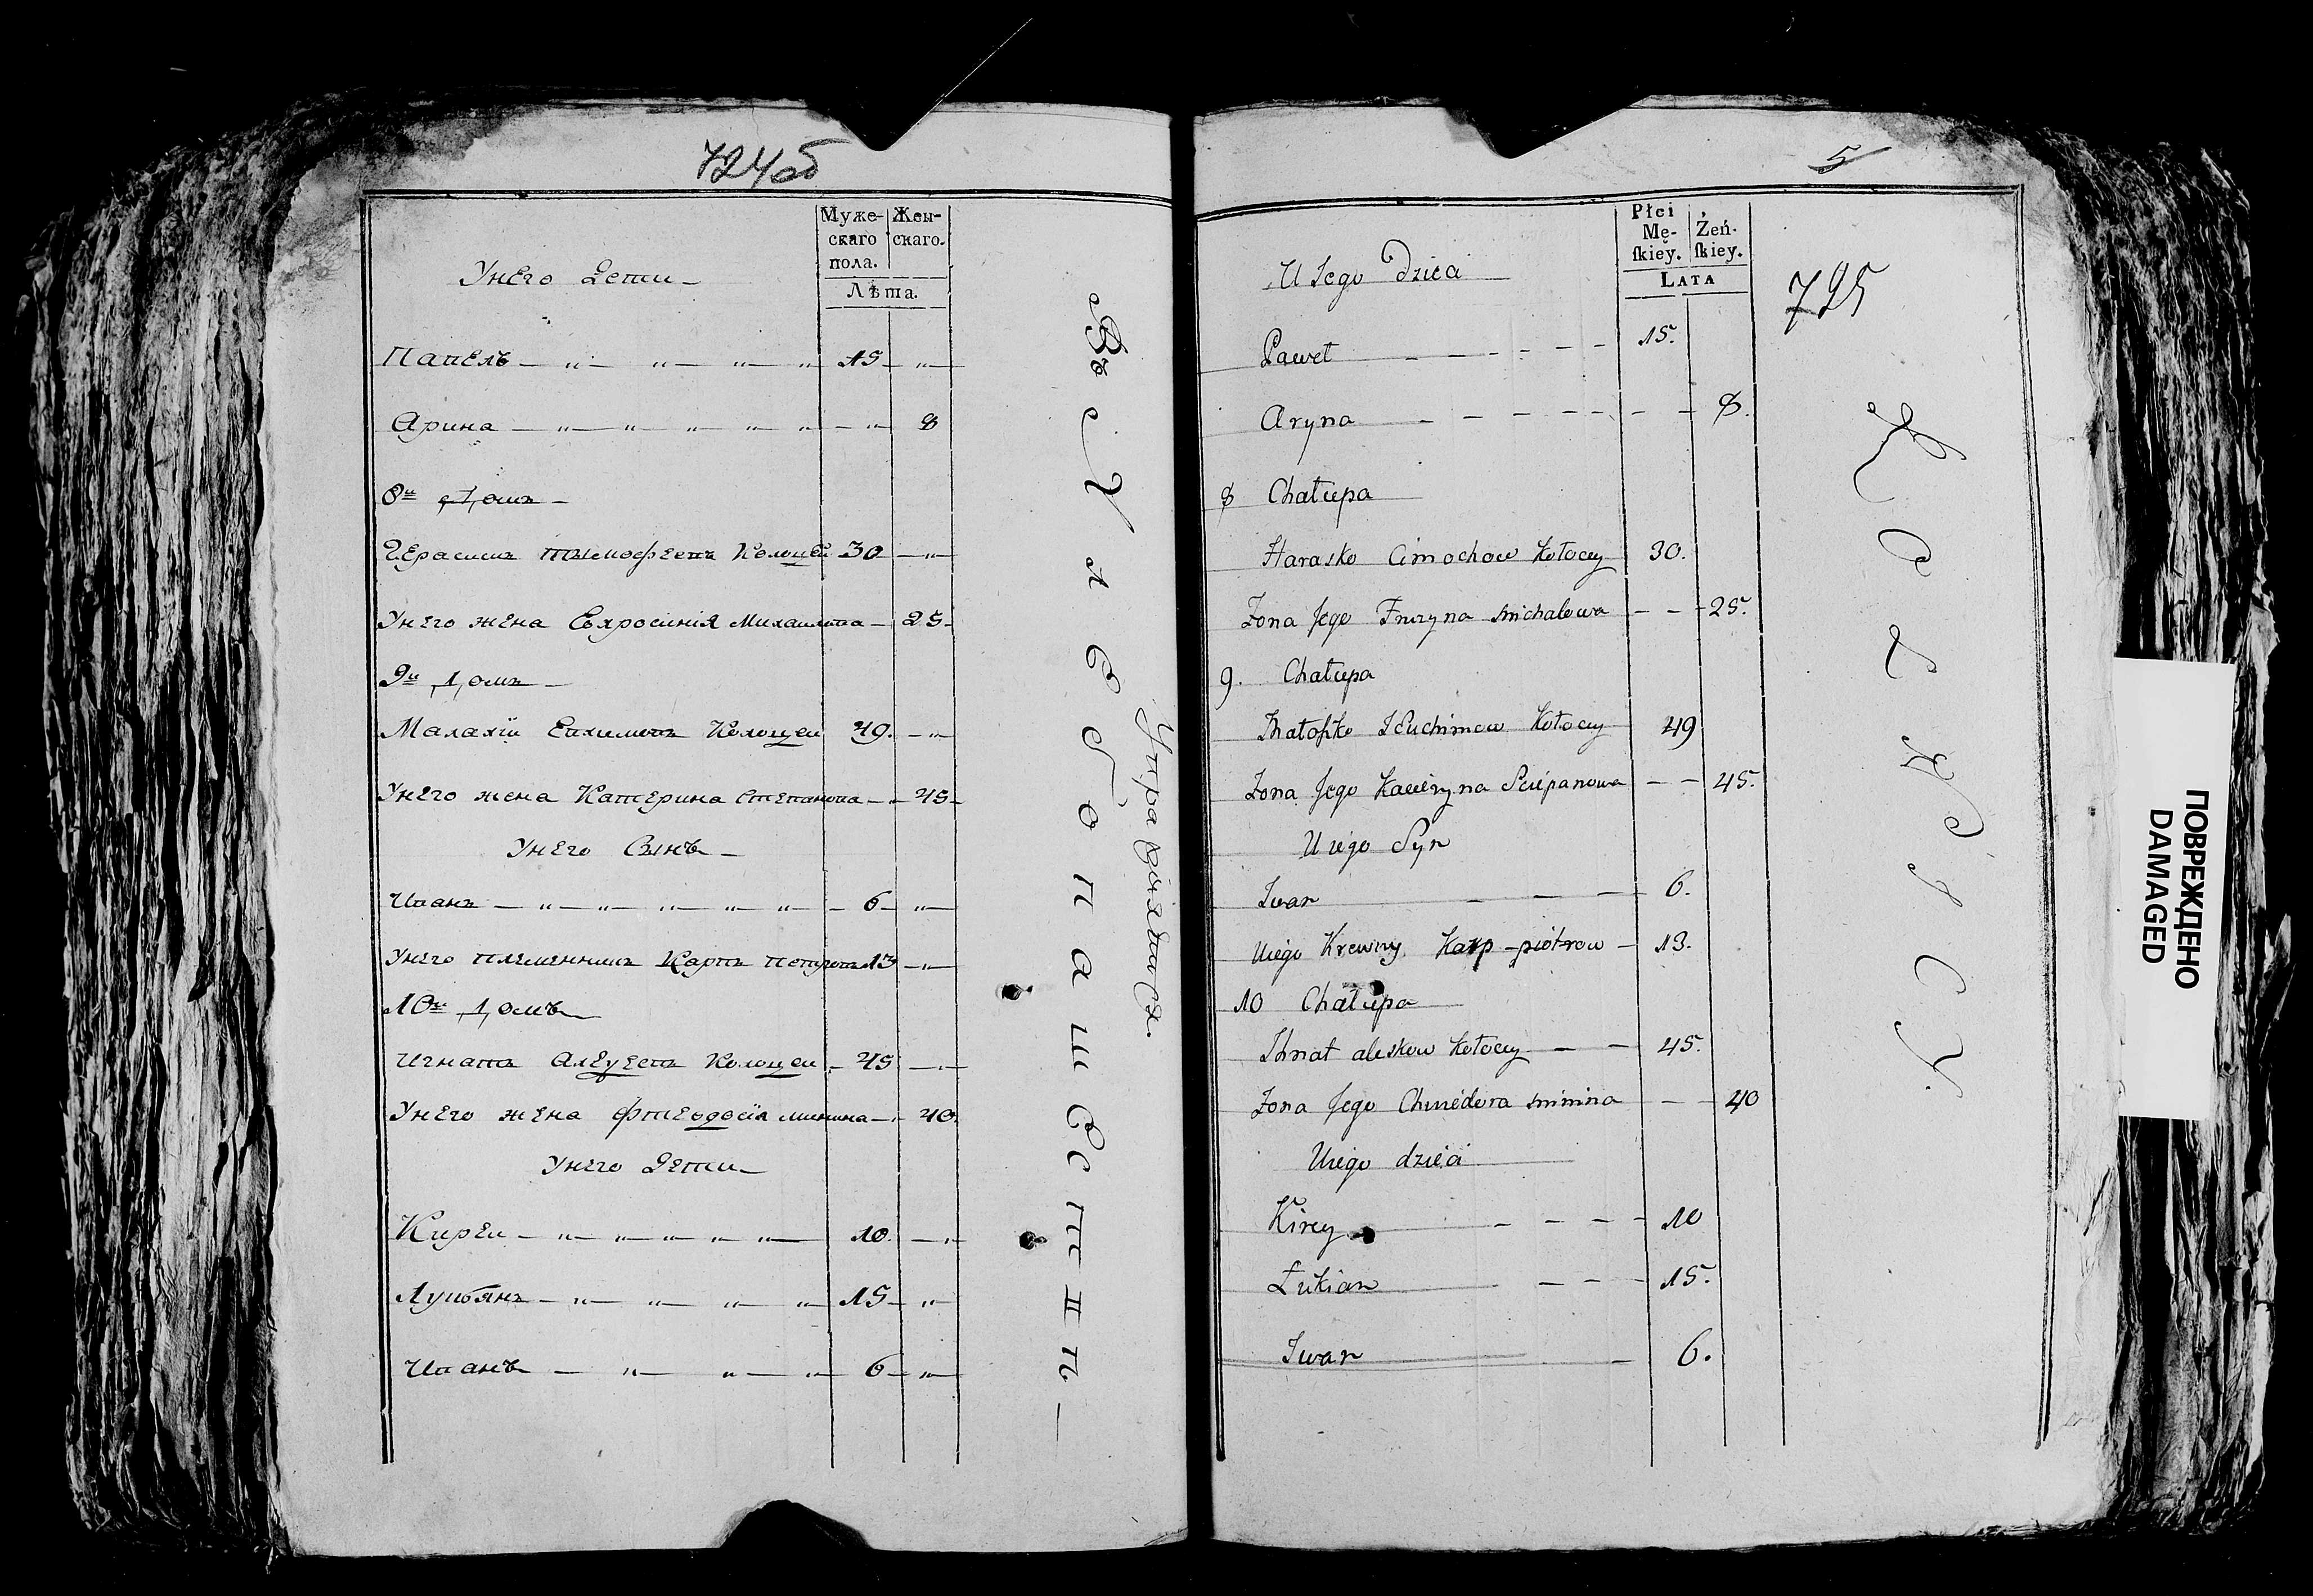 724об
Муже-
скаго
пола.
Жен-
скаго.
Лѣта.
Унего Дети
Павелъ 15
Арина 8
8й Домъ
Герасимъ Тимофеевъ Колоцей 30
Унего жена Ефросинія Михаилова 25
9й Домъ
Малахій Евхимовъ Колоцеи 49
Унего жена Катерина Степанова 45
Унего Сынъ
Иванъ 6
Унего племенникъ Карпъ Петровъ 13
10й Домъ
Игнатъ Алексеевъ Колоцеи 45
Унего жена Фтеодосія Минина 40
Унего Дети
Киреи 10
Лукьянъ 15
Иванъ 6
Въ Хлебопашестве
Упражняются.
5
725
Płci
Mę-
ſkiey.
Żeń-
ſkiey.
LATA
U Jego Dzieci
Paweł 15.
Aryna 8.
8 Chałupa
Harasko Cimochow Kołocey 30.
Żona Jego Fruzyna Michałowa 25.
9. Chałupa
Małaſzko JEuchimow Kołocey 49
Żona Jego Kacieryna Sciepanowa 45.
U niego Syn
Iwan 6.
Uniego Krewny Karp piotrow 13.
10 Chałupa
Ihnat aleskow Kołocey 45.
Żona Jego Chwiedora minina 40
Uniego dzieci
Kirey 10
Łukian 15.
Iwan 6.
ПОВРЕЖДЕНО
DAMAGED